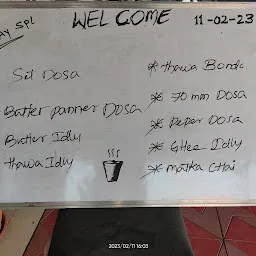 AY SPL
WELCOME
11-02-23
Set Dosa
Butter panner DOSA
Butler Idly
thawa Idly
* thawa Bonda
* 70 mm DOSA
* Peper DOSA
* GHee Idly
* matka CHai
2023/02/11 16:03